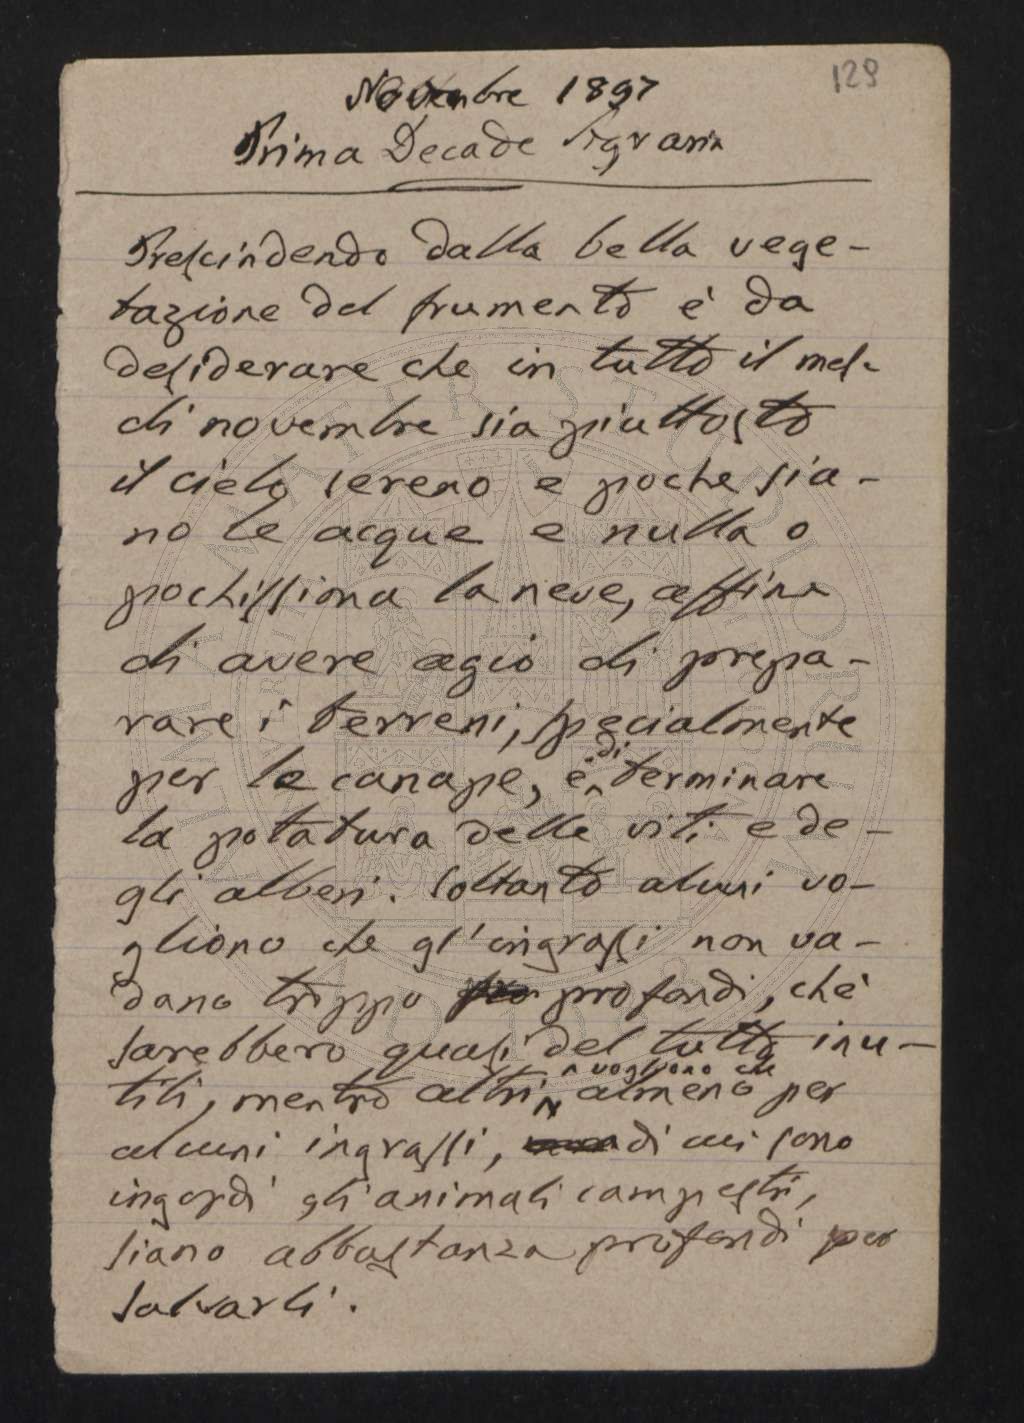 129
Novembre 1897
Prima Decade Agraria
Prescindendo dalla bella vege-
tazione del frumento è da
desiderare che in tutto il mese
di novembre sia piuttosto
il cielo sereno e poche sia-
no le acque e nulla o
pochissima la neve, affine
di avere agio di prepa-
rare i terreni, specialmente
per le canape, e di terminare
la potatura delle viti e de-
gli alberi. Soltanto alcuni vo-
gliono che gl'ingrassi non va-
dano troppo profondi, chè
sarebbero quasi del tutto inu-
tili, mentre altri vogliono che almeno per
alcuni ingrassi, di cui sono
ingordi gli animali campestri,
siano abbastanza profondi per
salvarli.